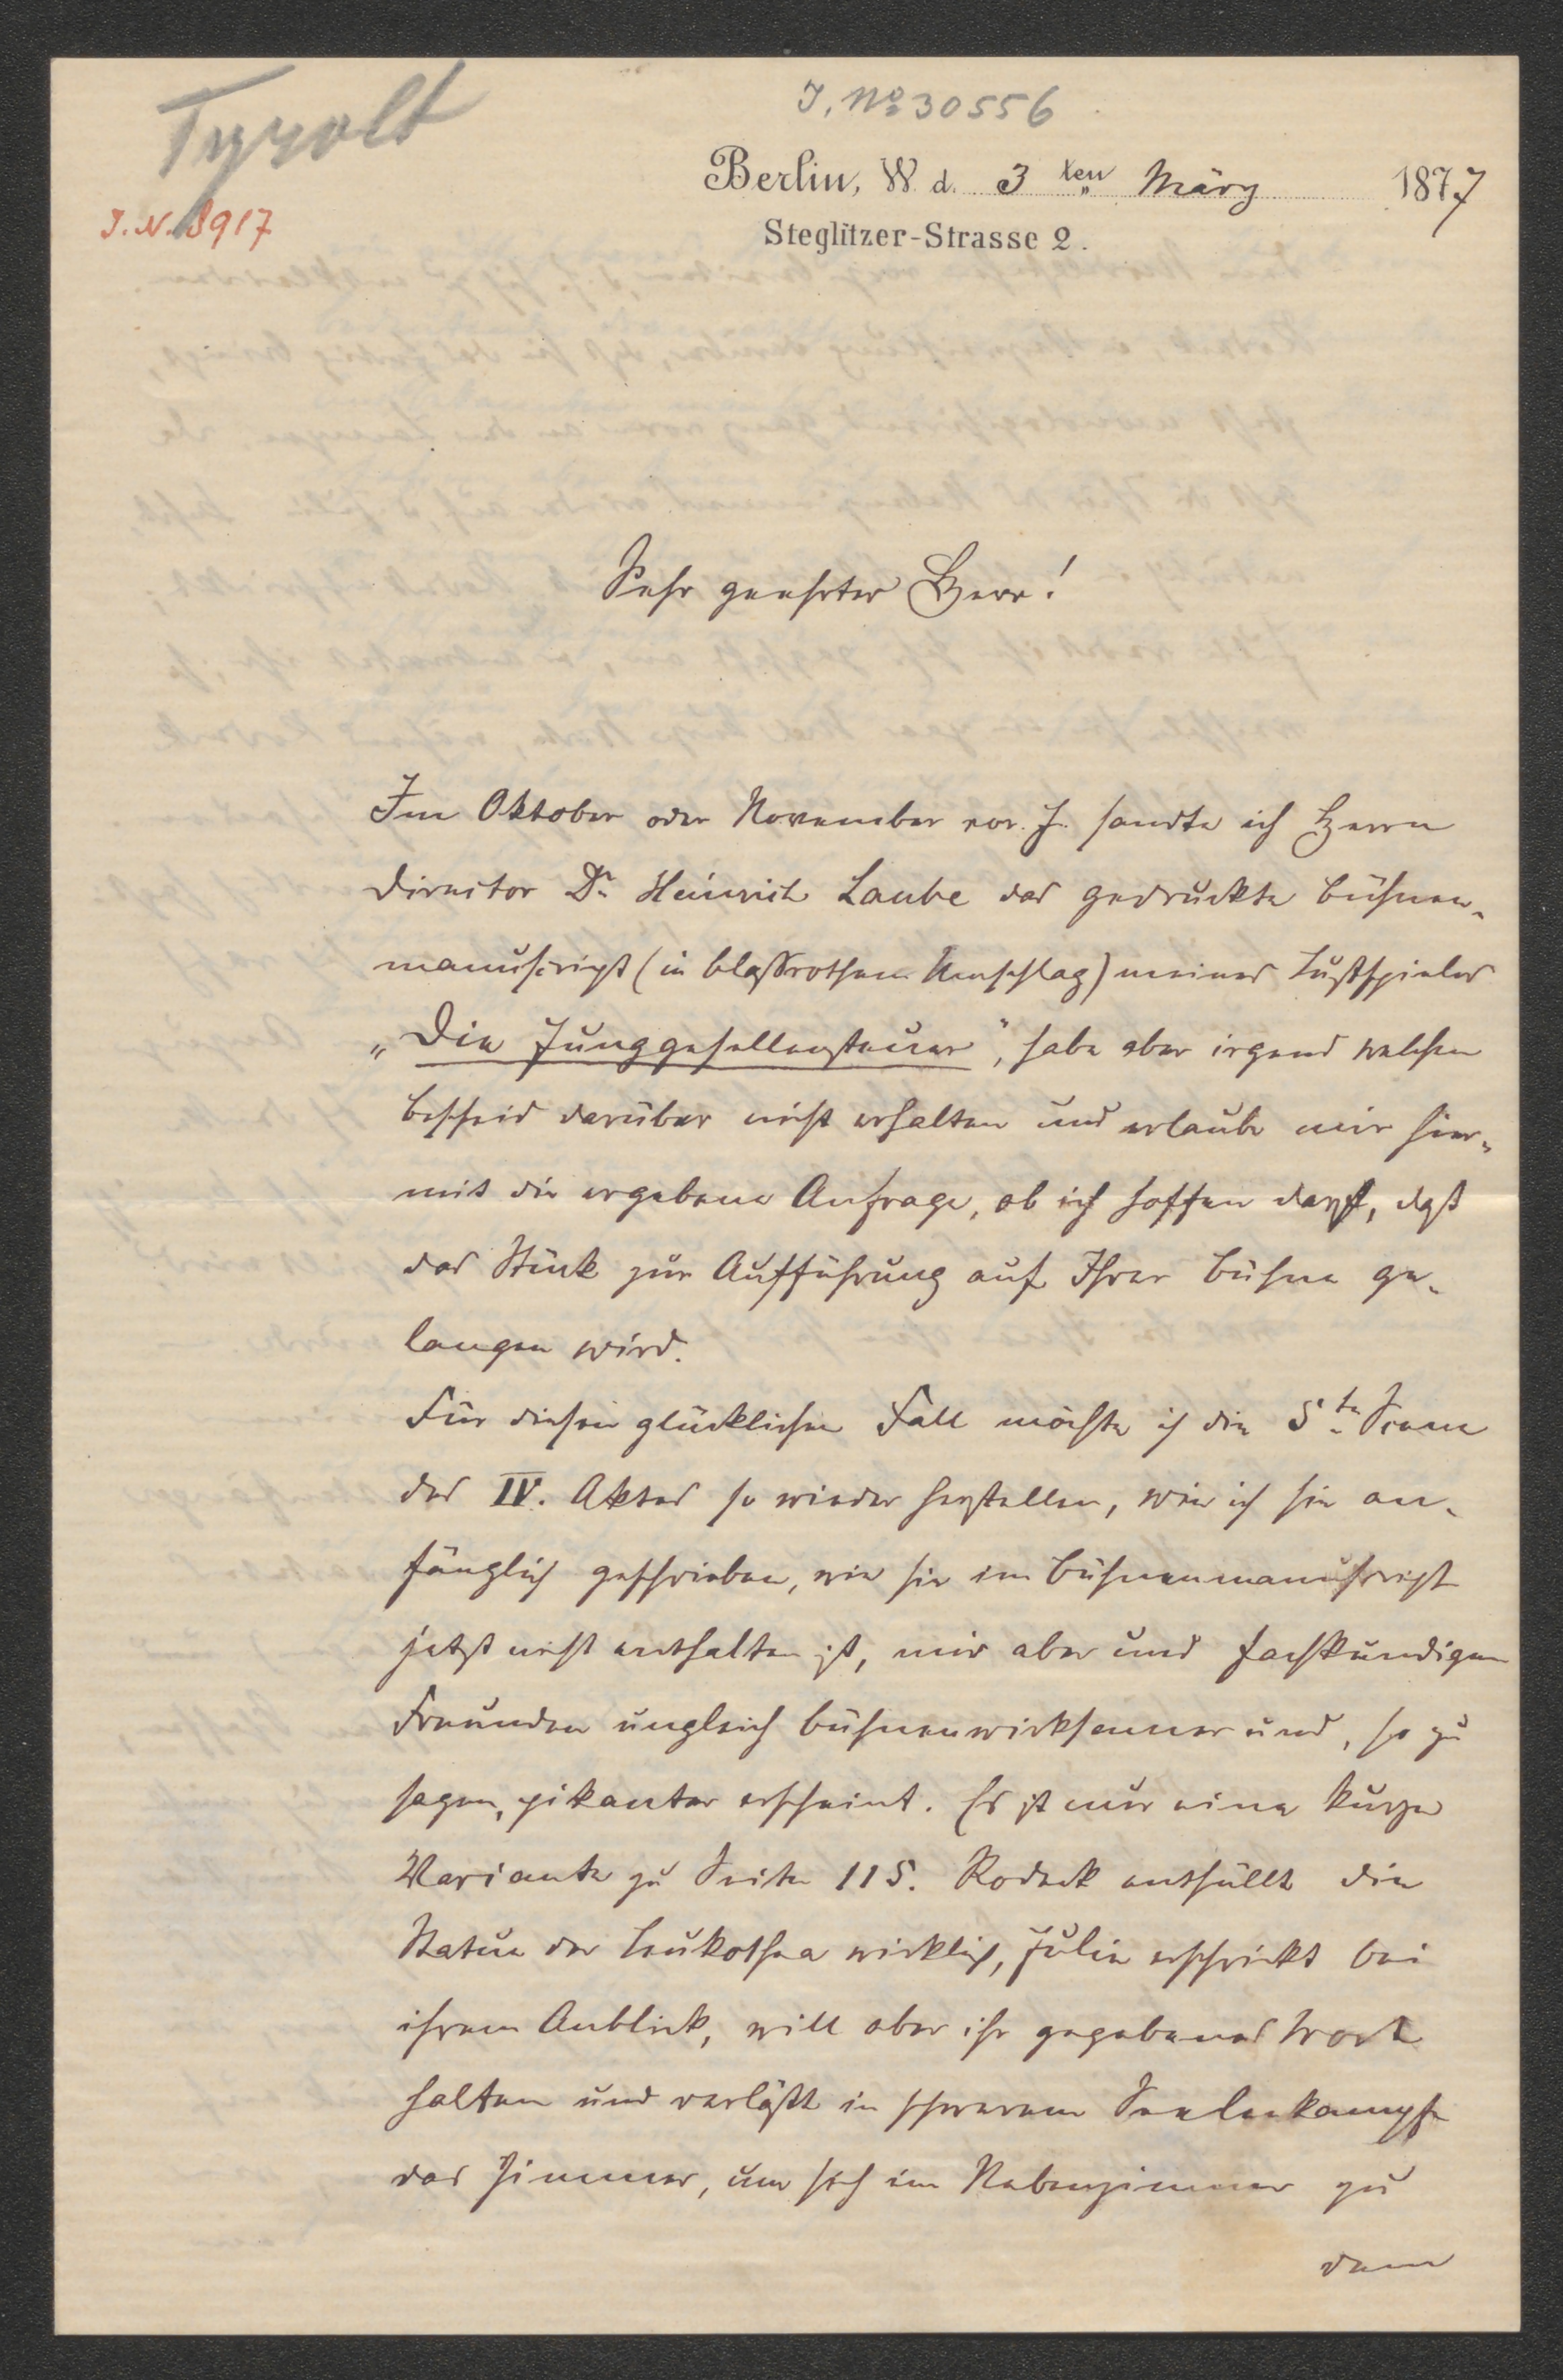 Tyrolt
J. No 30556
J.N. 8917
Berlin, W. d. 3 ten März 1877
Steglitzer-Strasse 2.
Sehr geehrter Herr!
Im Oktober oder November vor. J. sandte ich Herrn
Director Dr. Heinrich Laube das gedruckte Bühnen-
manuscript (in blaßrothem Umschlag) meines Lustspieles
„Die Junggesellensteuer", habe aber irgend welchen
Bescheid darüber nicht erhalten und erlaube mir hier-
mit die ergebene Anfrage, ob ich hoffen darf, daß
das Stück zur Aufführung auf Ihrer Bühne ge-
langen wird.
Für diesen glücklichen Fall möchte ich die 5te Scene
des IV. Aktes so wieder herstellen, wie ich sie an-
fänglich geschrieben, wie sie im Bühnenmanuscript
jetzt nicht enthalten ist, mir aber und fachkundigen
Freunden ungleich bühnenwirksamer und, so zu
sagen, pikanter erscheint. Es ist nur eine kurze
Variante zu Seite 115. Rodeck enthüllt die
Statue der Leukothea wirklich, Julie erschrickt bei
ihrem Anblick, will aber ihr gegebenes Wort
halten und verläßt in schwerem Seelenkampfe
das Zimmer, um sich im Nebenzimmer zu
dem